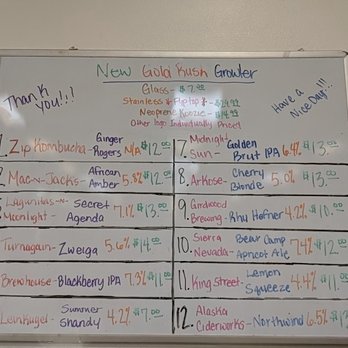 New Gold Rush Growler
Glass - $7.00
Stainless & Fliptop $ - $29.99
Neoprene Koozie - $14.99
Other logo Individually Priced!
Thank
you!!!
Have a
Nice Day!!!
1. Zip Kombucha - Ginger Rogers N/A $12.00
2. Mac-n-Jacks - African Amber 5.8% $12.00
Lagunitas-n-Moonlight - Secret Agenda 7.1% $13.00
Turnagain - Zweiga 5.6% $14.00
Brewhouse - Blackberry IPA 7.3% $11.00
Leinkugel - Summer Shandy 4.2% $7.00
7. Midnight Sun - Golden Brut IPA 6.4% $13.00
8. Arkose - Cherry Blonde 5.0% $13.00
9. Girdwood Brewing - Rhu Hefner 4.2% $10.00
10. Sierra Nevada - Bear Camp Apricot Ale 7.4% $12.00
11. King Street - Lemon Squeeze 4.4% $11.
12. Alaska Ciderworks - Northwind 6.5% $13